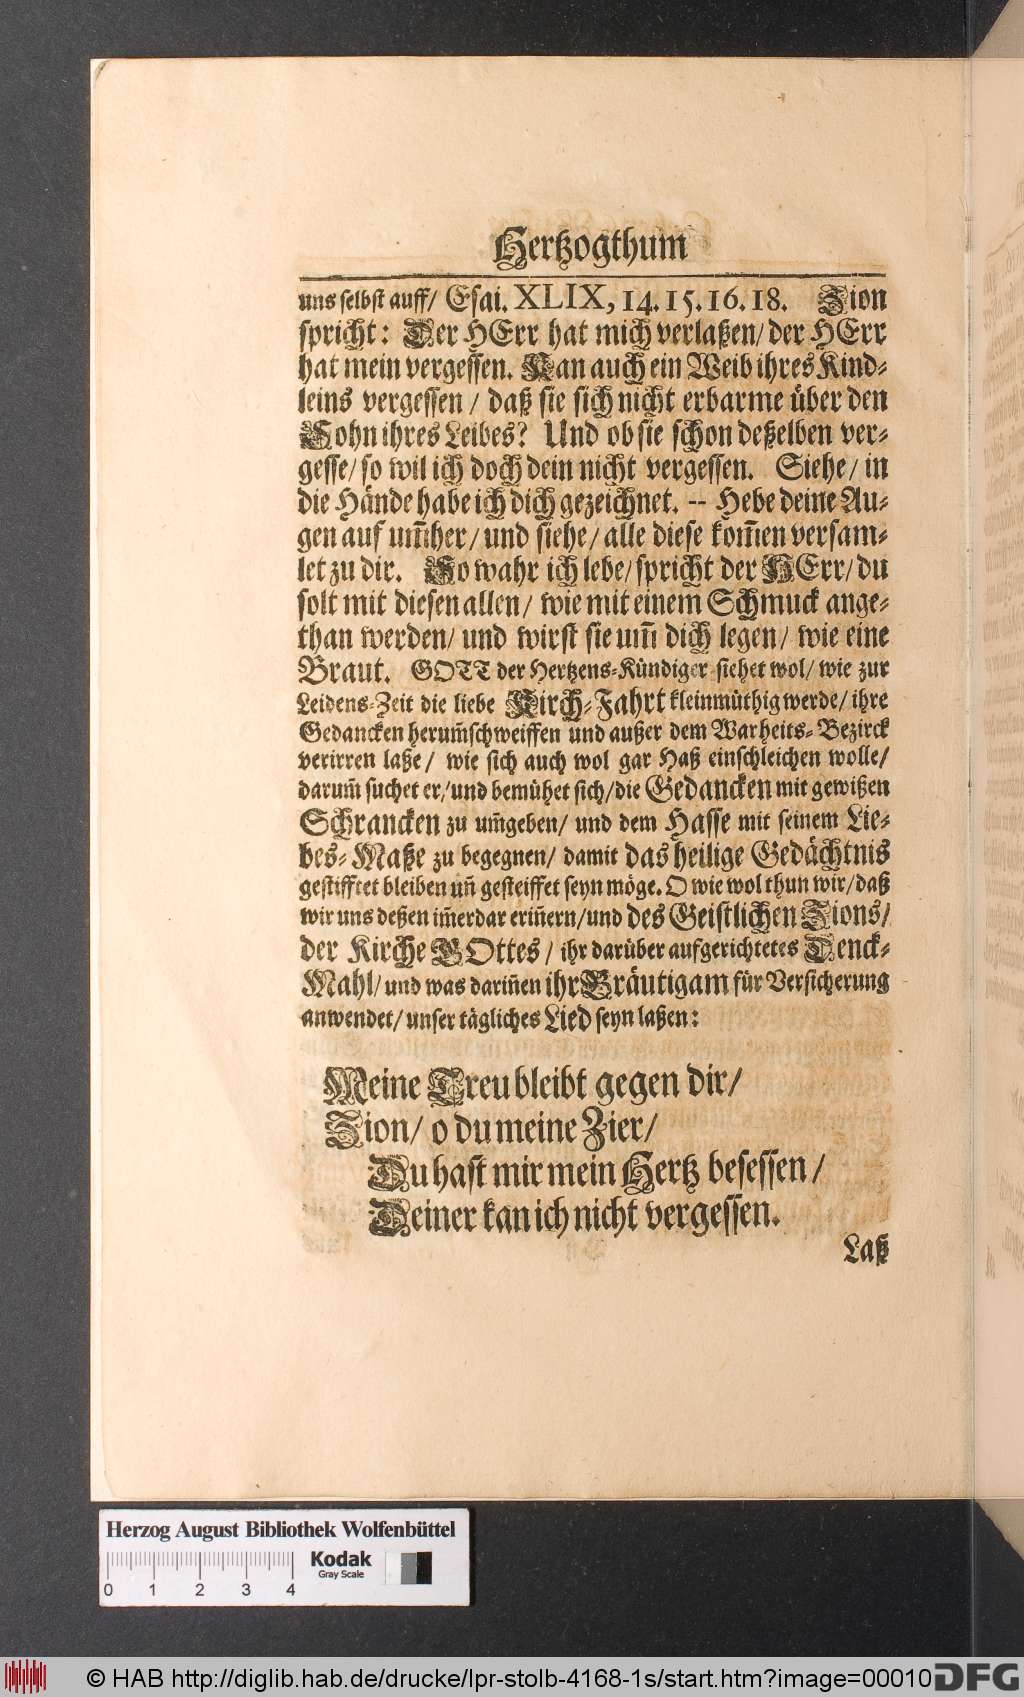 Hertzogthum
uns selbst auff/ Esai. XLIX, 14. 15. 16. 18. Zion
spricht: Der HErr hat mich verlaßen/ der HErr
hat mein vergessen. Kan auch ein Weib ihres Kind-
leins vergessen / daß sie sich nicht erbarme über den
Sohn ihres Leibes? Und ob sie schon deßelben ver-
gesse/ so wil ich doch dein nicht vergessen. Siehe/ in
die Hände habe ich dich gezeichnet. -- Hebe deine Au-
gen auf um̃her/ und siehe/ alle diese kom̃en versam-
let zu dir. So wahr ich lebe/ spricht der HErr/ du
solt mit diesen allen/ wie mit einem Schmuck ange-
than werden/ und wirst sie um̃ dich legen/ wie eine
Braut. GOTT der Hertzens-Kündiger siehet wol/ wie zur
Leidens-Zeit die liebe Kirch-Fahrt kleinmüthig werde/ ihre
Gedancken herum̃schweiffen und außer dem Warheits-Bezirck
verirren laße/ wie sich auch wol gar Haß einschleichen wolle/
darum̃ suchet er/ und bemühet sich/ die Gedancken mit gewißen
Schrancken zu um̃geben/ und dem Hasse mit seinem Lie-
bes-Maße zu begegnen/ damit das heilige Gedächtnis
gestifftet bleiben un̄ gesteiffet seyn möge. O wie wol thun wir/ daß
wir uns deßen im̃erdar erin̄ern/ und des Geistlichen Zions/
der Kirche GOttes/ ihr darüber aufgerichtetes Denck-
Mahl/ und was darin̄en ihr Bräutigam für Versicherung
anwendet/ unser tägliches Lied seyn laßen:
Meine Treu bleibt gegen dir/
Zion/ o du meine Zier/
Du hast mir mein Hertz besessen /
Deiner kan ich nicht vergessen.
Laß
Herzog August Bibliothek Wolfenbüttel
Kodak
Gray Scale
0 1 2 3 4
© HAB http://diglib.hab.de/drucke/lpr-stolb-4168-1s/start.htm?image=00010
DFG